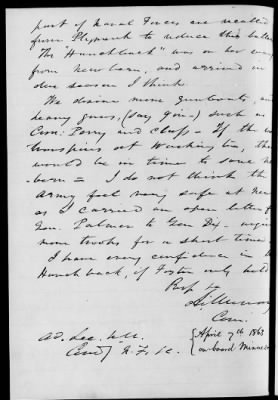 part of Naval Forces are recalled
from Plymouth to reduce this battery
The "Hunchback" was on her way
from Newbern, and arrived in
due season I think.
We desire more Gunboats, and
heavy guns, (say 9 in-) such as
Com: Perry and class - If the
transpires at Washington, they
would be in time to save New-
-bern = I do not think the
Army feel very safe at New
as I carried an open letter f
Gen. Palmer to Gen Dix - urging
more troops for a short time
I have every confidence in th
Hunchback, if Foster only hold
Resp Yr
A. Murray
Com.
Ad. Lee. U.S.
Comdg N. At. &c.
{April 7th 1863
{on board Minnesota